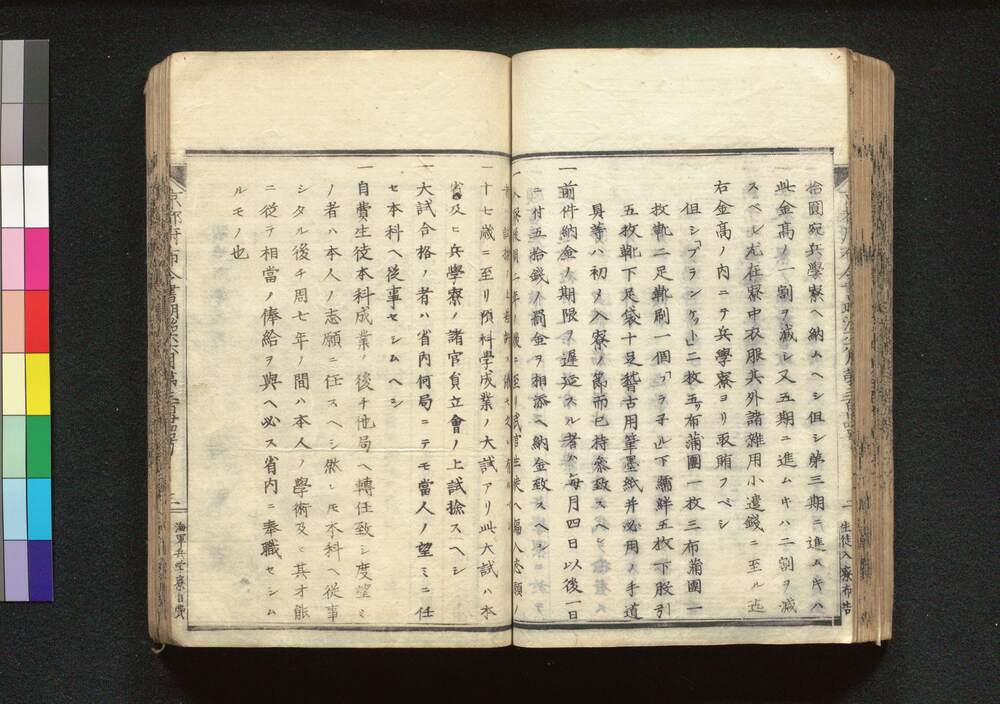 拾圓宛兵學寮ヘ納ムヘシ但シ第三期ニ進ムキハ
此金高ノ一割ヲ減シ又五期ニ進ムキハ二割ヲ減
スヘシ尤在寮中衣服其外諸雜用小遣錢ニ至ル迄
右金高ノ内ニテ兵學寮ヨリ取賄フベシ
但シ「ブランケット」二枚五布蒲團一枚三布蒲團一
枚靴二足靴刷一個「フラネル」下襦袢五枚下股引
五枚靴下足袋十足稽古用筆墨紙并必用ノ手道
具等ハ初メ入寮ノ節而已持參致スヘシ
一前件納金ノ期限ヲ遲延スル者ハ毎月四日以後一日
ニ付五拾錢ノ罰金ヲ相添ヘ納金致スヘシ
一十七歳ニ至リ預科學成業ノ大試アリ此大試ハ本
省及ヒ兵學寮ノ諸官員立會ノ上試撿スヘシ
一大試合格ノ者ハ省内何局ニテモ當人ノ望ミニ任
セ本科ヘ從事セシムヘシ
一自費生徒本科成業ノ後チ他局ヘ轉任致シ度望ミ
ノ者ハ本人ノ志願ニ任スヘシ然シモ本科ヘ從事
シタル後チ周七年ノ間ハ本人ノ學術及ヒ其才能
ニ從テ相當ノ俸給ヲ與ヘ必ス省内ニ奉職セシム
ルモノ也
二
生徒入寮布告
三
海軍兵學寮自費